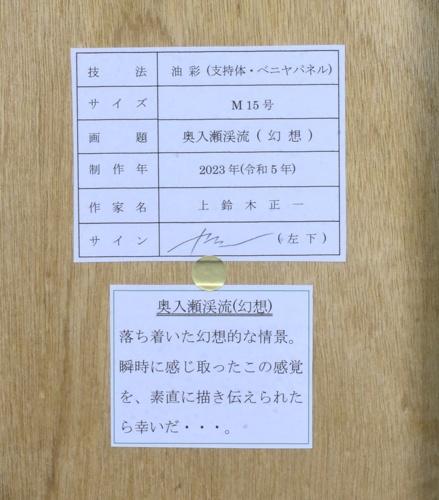 技法 油彩 (支持体・ベニヤパネル)
サイズ M 15号
画題 奥入瀬渓流 ( 幻 想 )
制作年 2023年(令和5年)
作家名 上 鈴 木 正 一
サイン ( 左 下 )
奥入瀬渓流(幻想)
落ち着いた幻想的な情景。
瞬時に感じ取ったこの感覚
を、素直に描き伝えられた
ら幸いだ・・・。